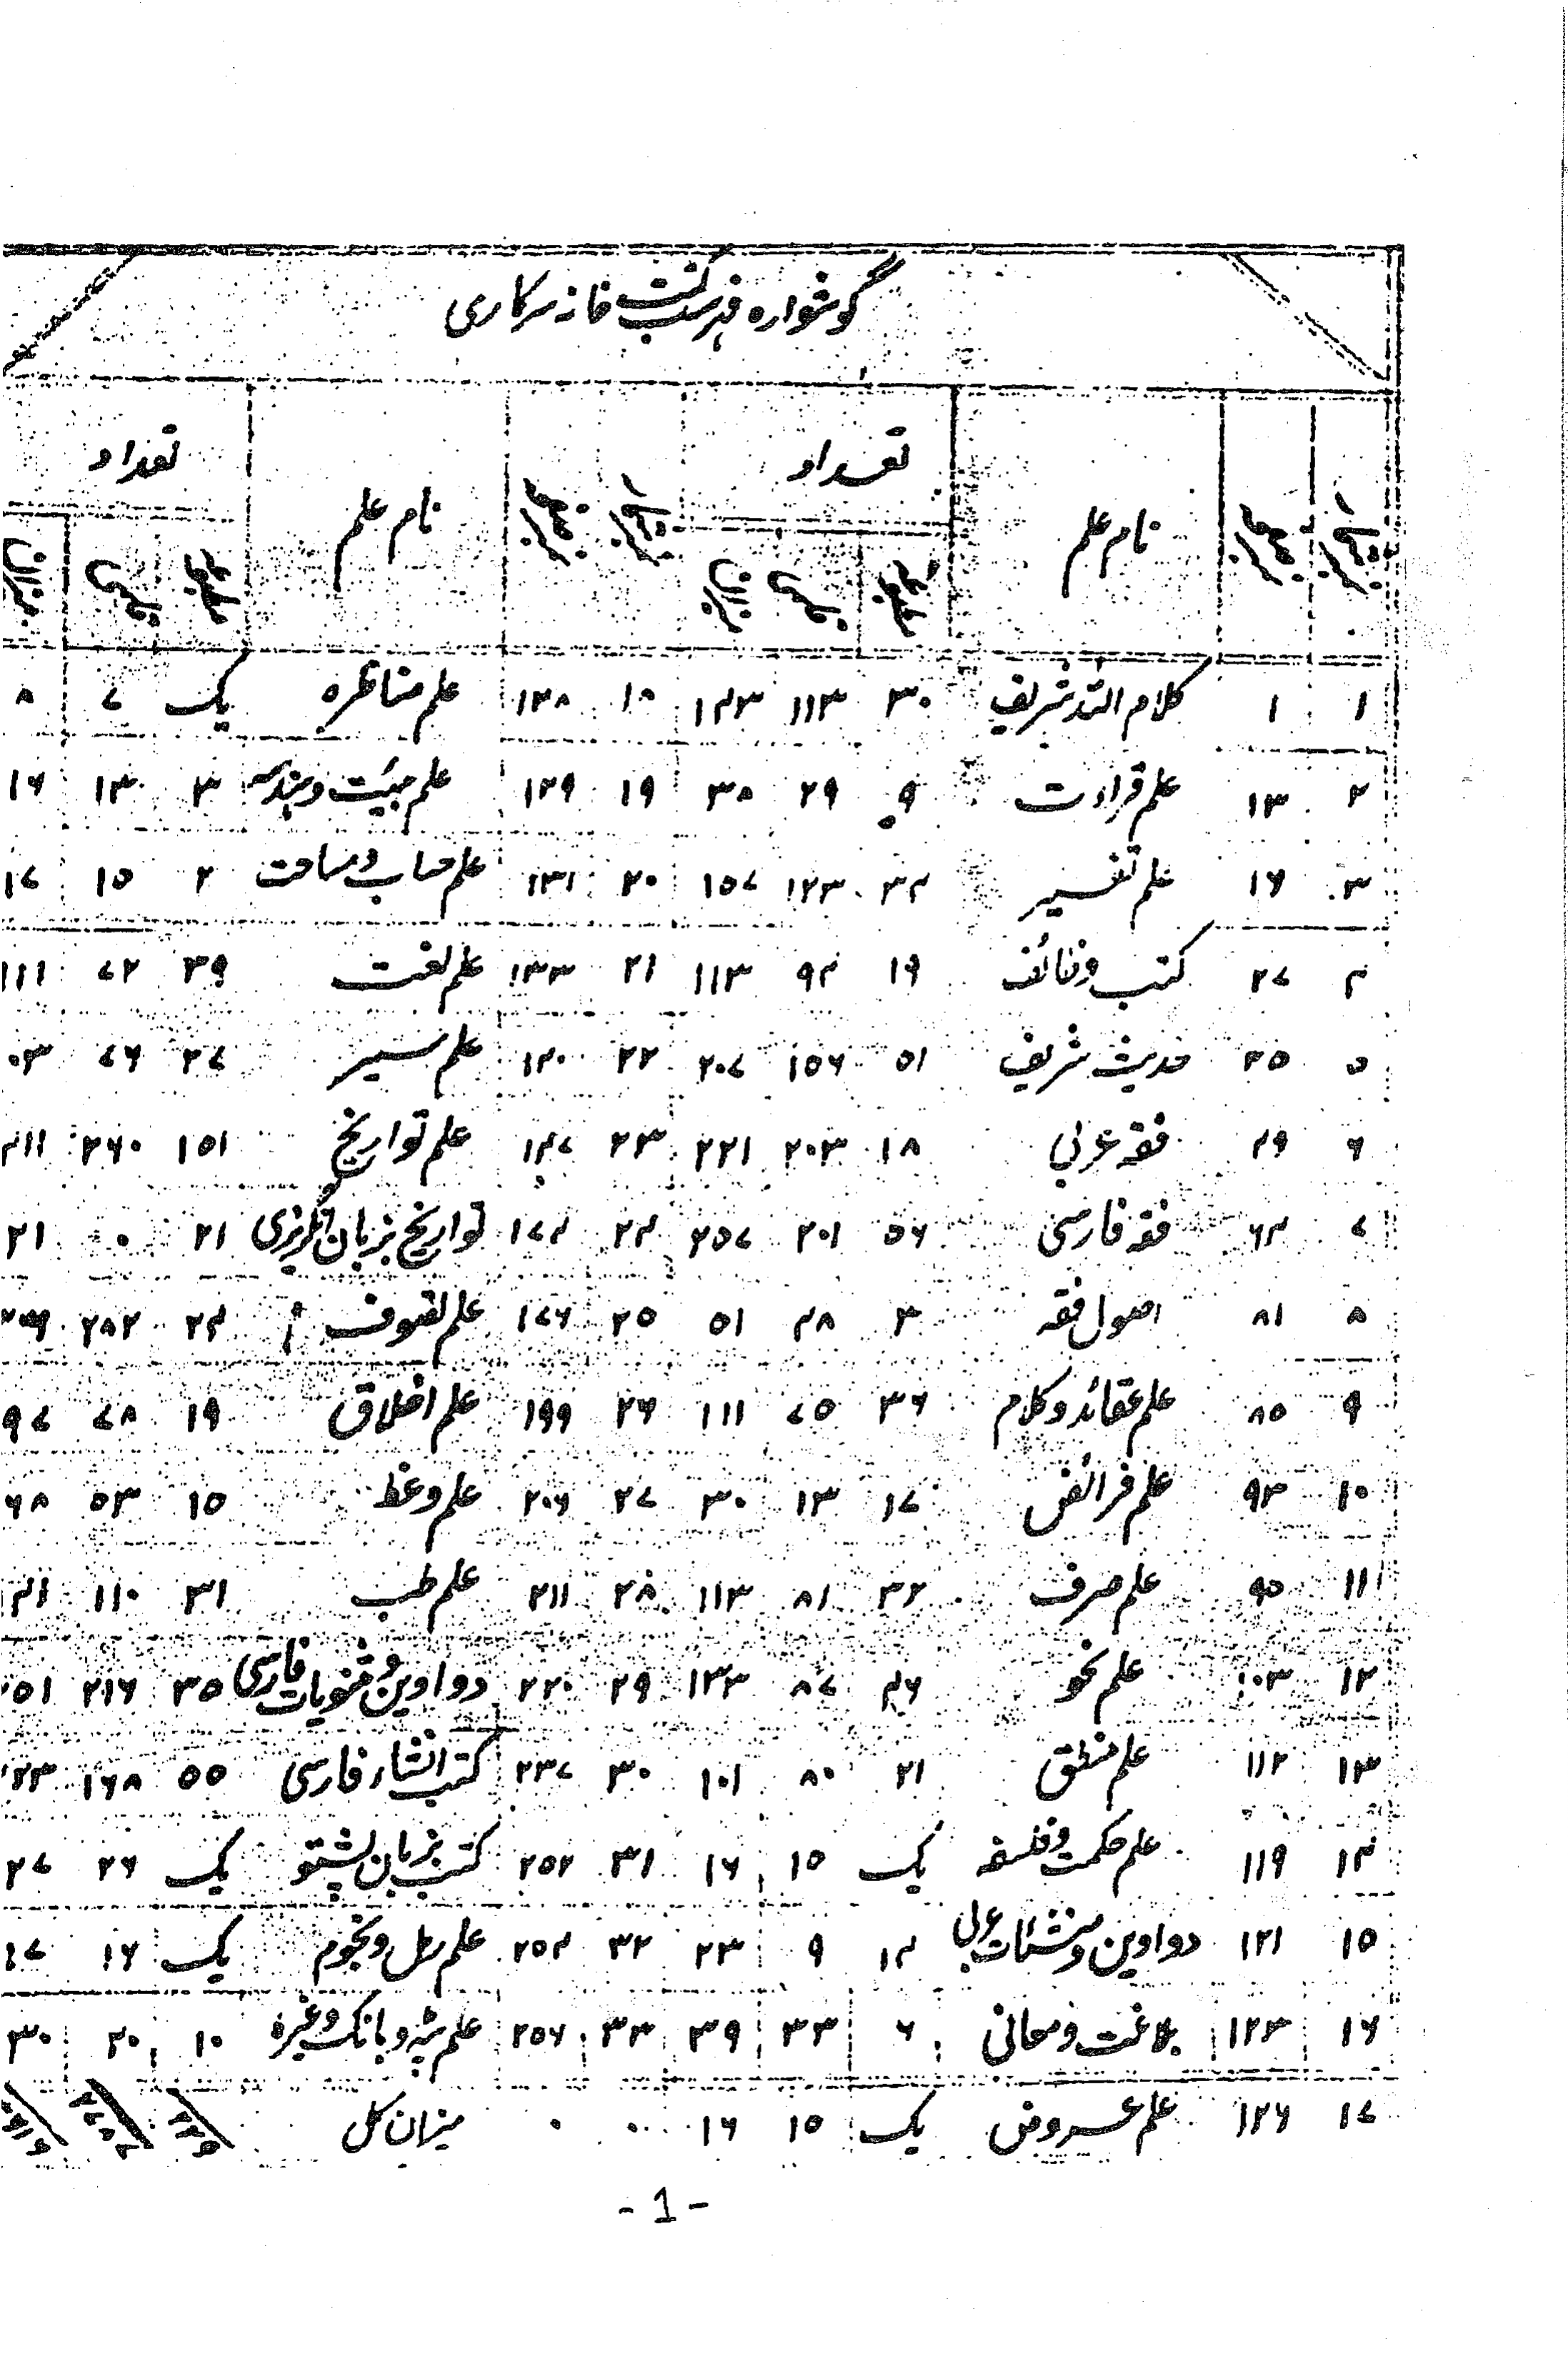 گوشواره فہرست کتب خانہ سرکاری
نمبر شمار نمبر صفحہ نام علم تعداد نمبر شمار نمبر صفحہ نام علم تعداد
مطبوعہ قلمی میزان مطبوعہ قلمی میزان
۱ ۱ کلام اللہ شریف ۳۰ ۱۱۳ ۱۴۳ ۱۸ ۱۲۸ علم مناظرہ یک ۷ ۸
۲ ۱۳ علم قراءت ۹ ۲۹ ۳۸ ۱۹ ۱۲۹ علم ہیئت و ہندسہ ۳ ۱۳ ۱۶
۳ ۱۶ علم تفسیر ۳۴ ۱۲۳ ۱۵۷ ۲۰ ۱۳۱ علم حساب و مساحت ۲ ۱۵ ۱۷
۴ ۲۷ کتب وظائف ۱۹ ۹۴ ۱۱۳ ۲۱ ۱۳۳ علم لغت ۳۹ ۷۲ ۱۱۱
۵ ۳۵ حدیث شریف ۵۱ ۱۵۶ ۲۰۷ ۲۲ ۱۴۰ علم سیر ۲۷ ۷۶ ۰۳
۶ ۴۹ فقہ عربی ۱۸ ۲۰۳ ۲۲۱ ۲۳ ۱۴۷ علم تواریخ ۱۵۱ ۲۶۰ ۴۱۱
۷ ۶۴ فقہ فارسی ۵۶ ۲۰۱ ۲۵۷ ۲۴ ۱۷۴ تواریخ بزبان انگریزی ۲۱ ۰ ۲۱
۸ ۸۱ اصول فقہ ۳ ۴۸ ۵۱ ۲۵ ۱۷۶ علم تصوف ۲۴ ۲۸۲
۹ ۸۵ علم عقائد و کلام ۳۶ ۷۵ ۱۱۱ ۲۶ ۱۹۹ علم اخلاق ۱۹ ۷۸ ۹۷
۱۰ ۹۳ علم فرائض ۱۷ ۱۳ ۳۰ ۲۷ ۲۰۶ علم وعظ ۱۵ ۵۳ ۶۸
۱۱ ۹۵ علم صرف ۳۲ ۸۱ ۱۱۳ ۲۸ ۲۱۱ علم طب ۳۱ ۱۱۰ ۱۴۱
۱۲ ۱۰۳ علم نحو ۴۶ ۸۷ ۱۳۳ ۲۹ ۲۲۰ دواوین و مثنویات فارسی ۳۵ ۲۱۶ ۵۱
۱۳ ۱۱۲ علم منطق ۲۱ ۸۰ ۱۰۱ ۳۰ ۲۳۷ کتب انشاء فارسی ۵۵ ۱۶۸ ۲۳
۱۴ ۱۱۹ علم حکمت و فلسفہ یک ۱۵ ۱۶ ۳۱ ۲۵۲ کتب بزبان پشتو یک ۲۶ ۲۷
۱۵ ۱۲۱ دواوین و منشئات عربی ۱۴ ۹ ۲۳ ۳۲ ۲۵۴ علم رمل و نجوم یک ۱۶ ۱۷
۱۶ ۱۲۳ بلاغت و معانی ۶ ۳۳ ۳۹ ۳۳ ۲۵۶ علم پٹہ و بانک وغیرہ ۱۰ ۲۰ ۳۰
۱۷ ۱۲۶ علم عروض یک ۱۵ ۱۶ ۰۰ ۰ میزان کل
-1-